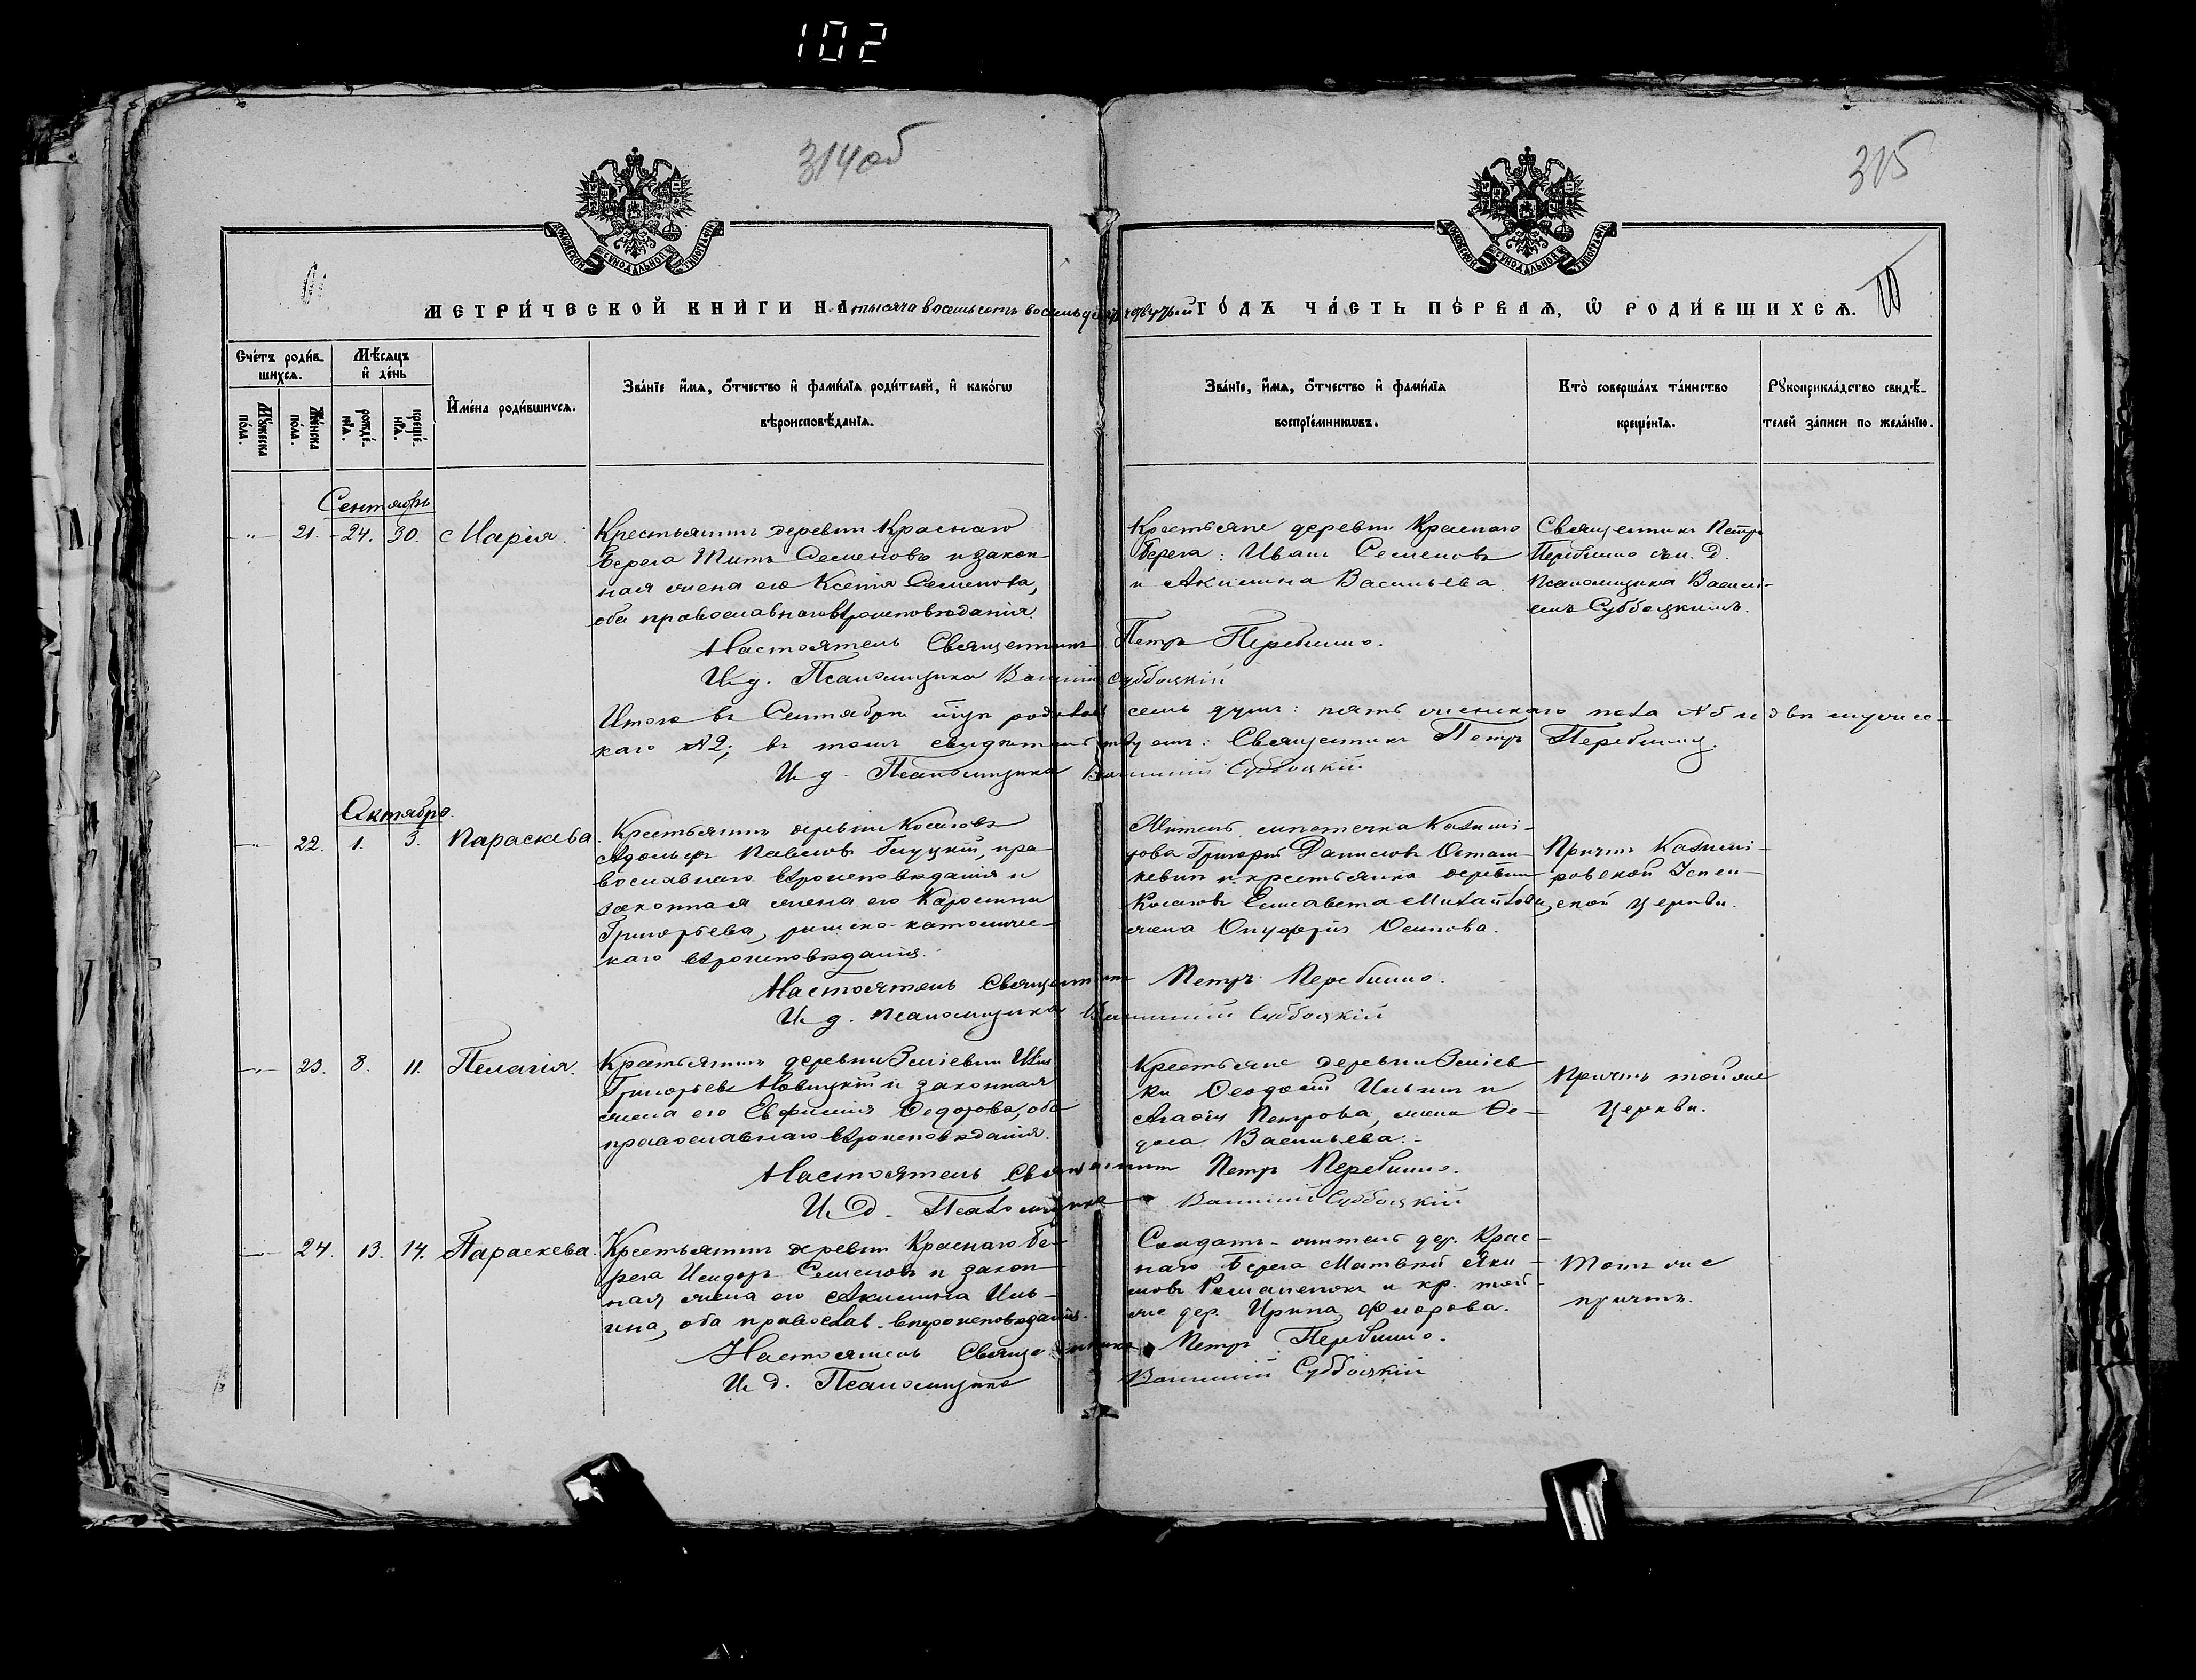 102
314об
315
МЕТРИЧЕСКОЙ КНИГИ НА тысяча восемьсотъ восемьдесятъ четвертый ГОДЪ ЧАСТЬ ПЕРВАЯ, Ѡ РОДИВШИХСЯ.
Счетъ родив-
шихся.
Мѣсяцъ
и день
Мужеска
пола.
Женска
пола.
рожде-
нія.
креще-
нія.
Имена родившихся.
Званіе имя, отчество и фамилія родителей, и какогѡ
вѣроисповѣданія.
Званіе, имя, отчество и фамилія
воспріемникѡвъ.
Кто совершалъ таинство
крещенія.
Рукоприкладство свидѣ-
телей записи по желанію.
Сентябрь
21. 24. 30. Марія.
Крестьянинъ деревни Краснаго
Берега Титъ Семеновъ и закон-
ная жена его Ксенія Семенова,
оба православнаго вѣроисповѣданія.
Крестьяне деревни Краснаго
Берега: Иванъ Семеновъ
и Акилина Васильева.
Священникъ Петръ
Перебилло съ и. д.
Псаломщика Васи-
емъ Субботскимъ.
Настоятель Священникъ Петръ Перебилло.
И. д. Псаломщика Василій Субботскій
Итого въ Сентябрѣ мѣс. родилось семь душъ: пять женскаго пола № 5 и двѣ мужес-
каго № 2; въ томъ свидѣтельствуемъ: Священникъ Петръ Перебилло.
И д. Псаломщика Василій Субботскій
Октябрь.
22. 1. 3. Параскева
Крестьянинъ деревни
Адольфъ Павловъ, пра-
вославнаго вѣроисповѣданія и
законная жена его Каролина
Григорьева, римско-католичес-
каго вѣроисповѣданія.
Житель мѣстечка Казими-
рова Григорій Даниловъ Осташ-
кевичъ и крестьянка деревни
Елисавета Михайлова,
жена Онуфрія Осипова.
Причтъ Казими-
ровской Успен-
ской церкви.
Настоятель Священникъ Петръ Перебилло.
И д. Псаломщика Василій Субботскій
23. 8. 11. Пелагія.
Крестьянинъ деревни Зміевки Илья
Григорьевъ Новицкій и законная
жена его Евфимія Ѳедорова, оба
православнаго вѣроисповѣданія.
Крестьяне деревни Зміев-
ки Ѳеодосій Ильинъ и
Агафія Петрова, жена Ѳе-
дора Васильева.
Причтъ той же
Церкви.
Настоятель Священникъ Петръ Перебилло.
И. д. Псаломщика Василій Субботскій
24. 13. 14. Параскева.
Крестьянинъ деревни Краснаго бе-
рега Исидоръ Семеновъ и закон-
ная жена его Акилина Иль-
ина, оба православ. вѣроисповѣданія.
Солдатъ-житель дер. Крас-
наго Берега Матвѣй Яки-
мовъ Романенокъ и кр. той-
же дер. Ирина Флорова.
Тотъ же
причтъ.
Настоятель Священникъ Петръ Перебилло.
И д. Псаломщика Василій Субботскій